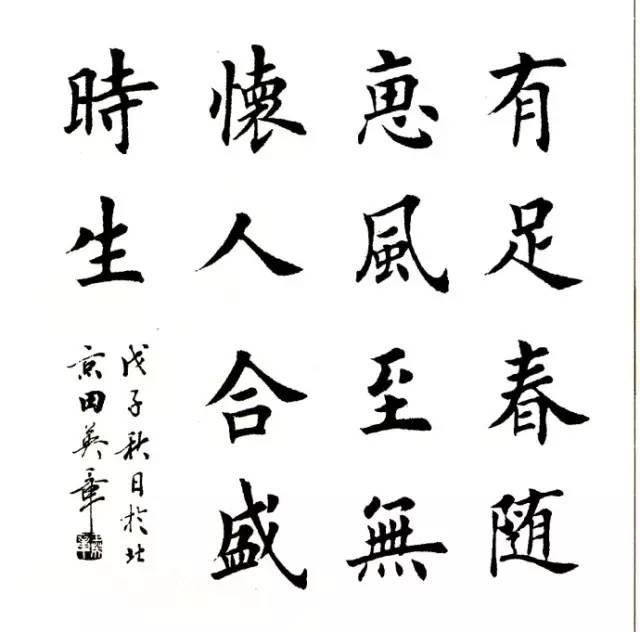 有足春随
恵風至無
懐人合盛
時生
戊子秋日於北
京田英章